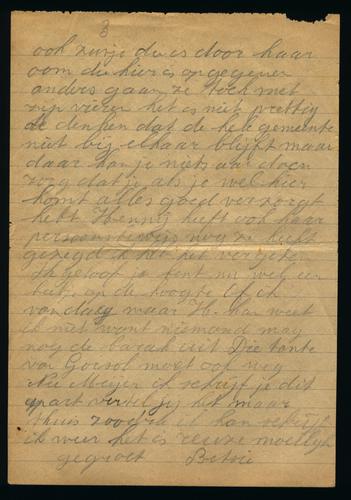 3
ook zusje die is door haar
oom die hier is opgegeven
anders gaan ze toch met
zijn vieren het is niet prettig
te denken dat de hele gemeente
niet bij elkaar blijft maar
daar kan je niets aan doen
zorg dat je als je wel hier
komt alles goed verzorgt
hebt Henny heeft ook haar
persoonsbewijs nog ze heeft
gezegd ik heb het vergeten
Ik geloof je bent nu wel een
beetje op de hoogte Of ik
vandaag naar H. kan weet
ik niet want niemand mag
nog de barak uit Die tante
van moet ook weg
Nu Meijer ik schrijf je dit
apart vertel jij het maar
thuis zoodra ik kan schrijf
ik weer het is reuze moeilijk
gegroet Betsie